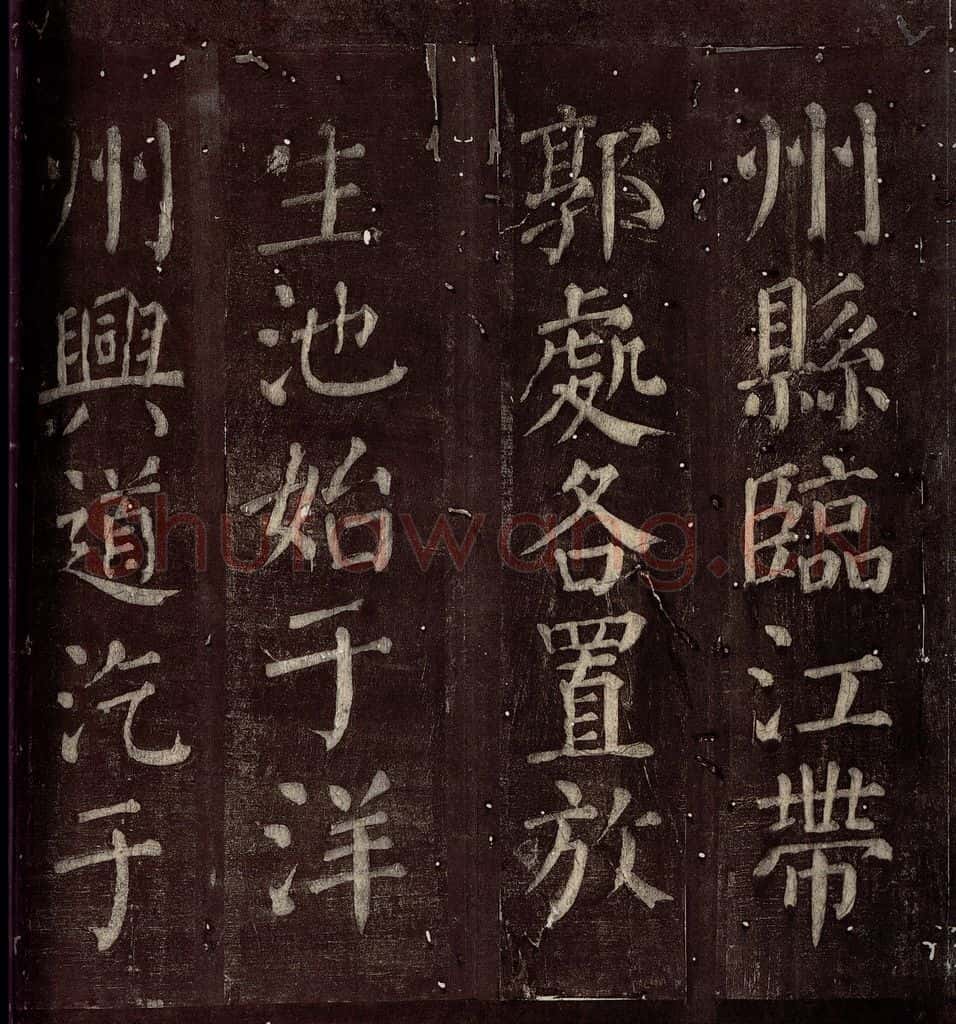 州縣臨江帶
郭處各置放
生池始于洋
州興道汔于
shufawang.cn